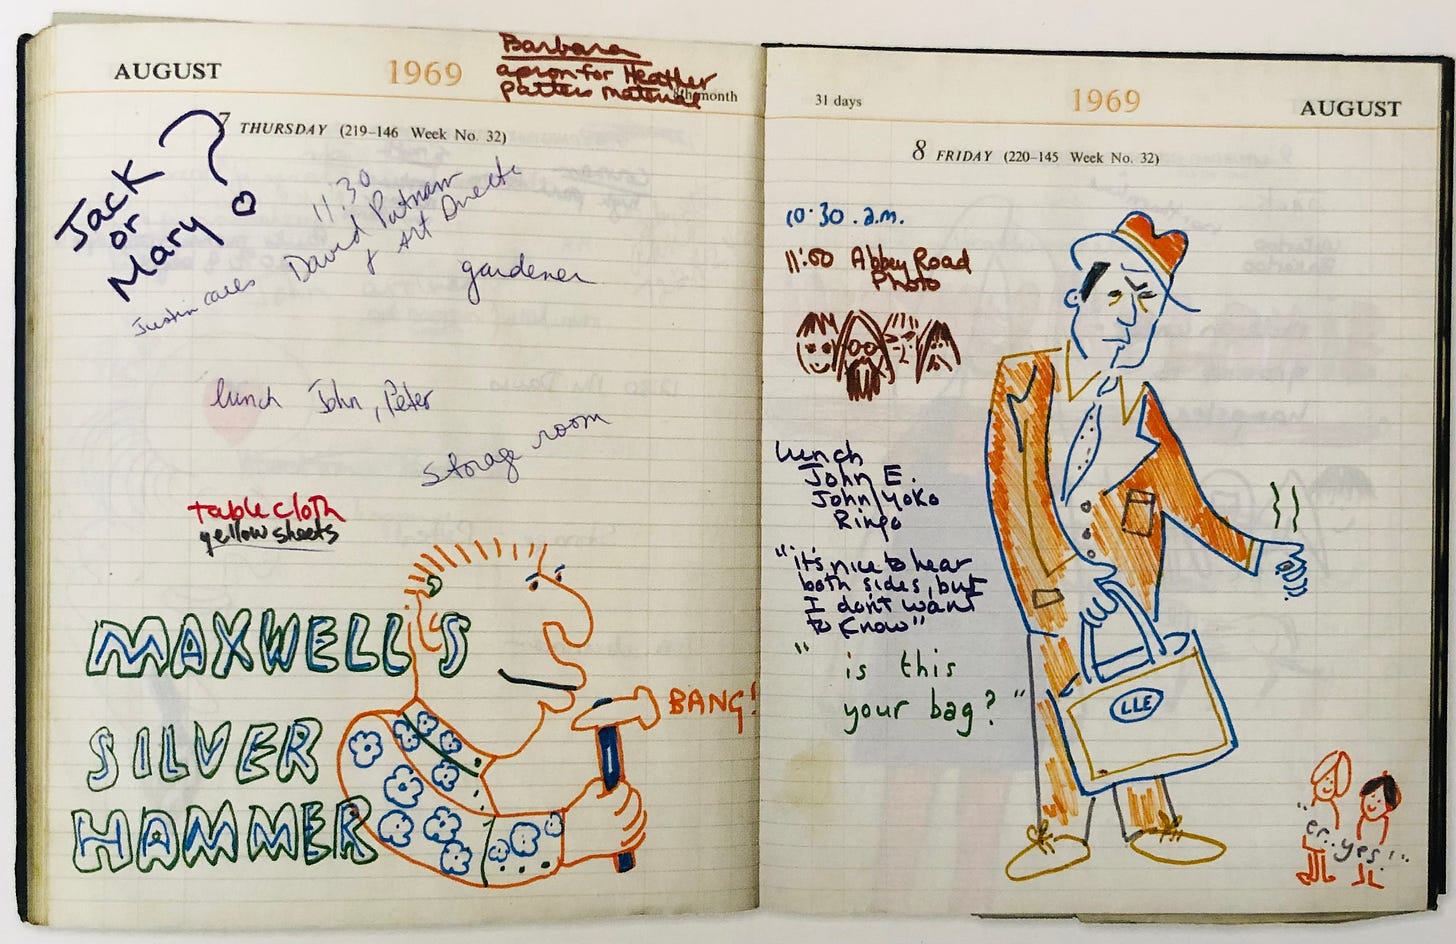 AUGUST
1969
Barbara
apron for Heather
pattern material
8th month
7 THURSDAY (219–146 Week No. 32)
Jack
or
Mary
?
11:30
David Putnam
& Art Director
Justin
gardener
lunch John, Peter
Storage room
tablecloth
yellow sheets
MAXWELL'S
SILVER
HAMMER
BANG!
31 days
1969
AUGUST
8 FRIDAY (220–145 Week No. 32)
10·30 a.m.
11:00 Abbey Road
Photo
lunch
John E.
John/Yoko
Ringo
"it's nice to hear
both sides, but
I don't want
to know"
"is this
your bag?"
LLE
"er..yes!"